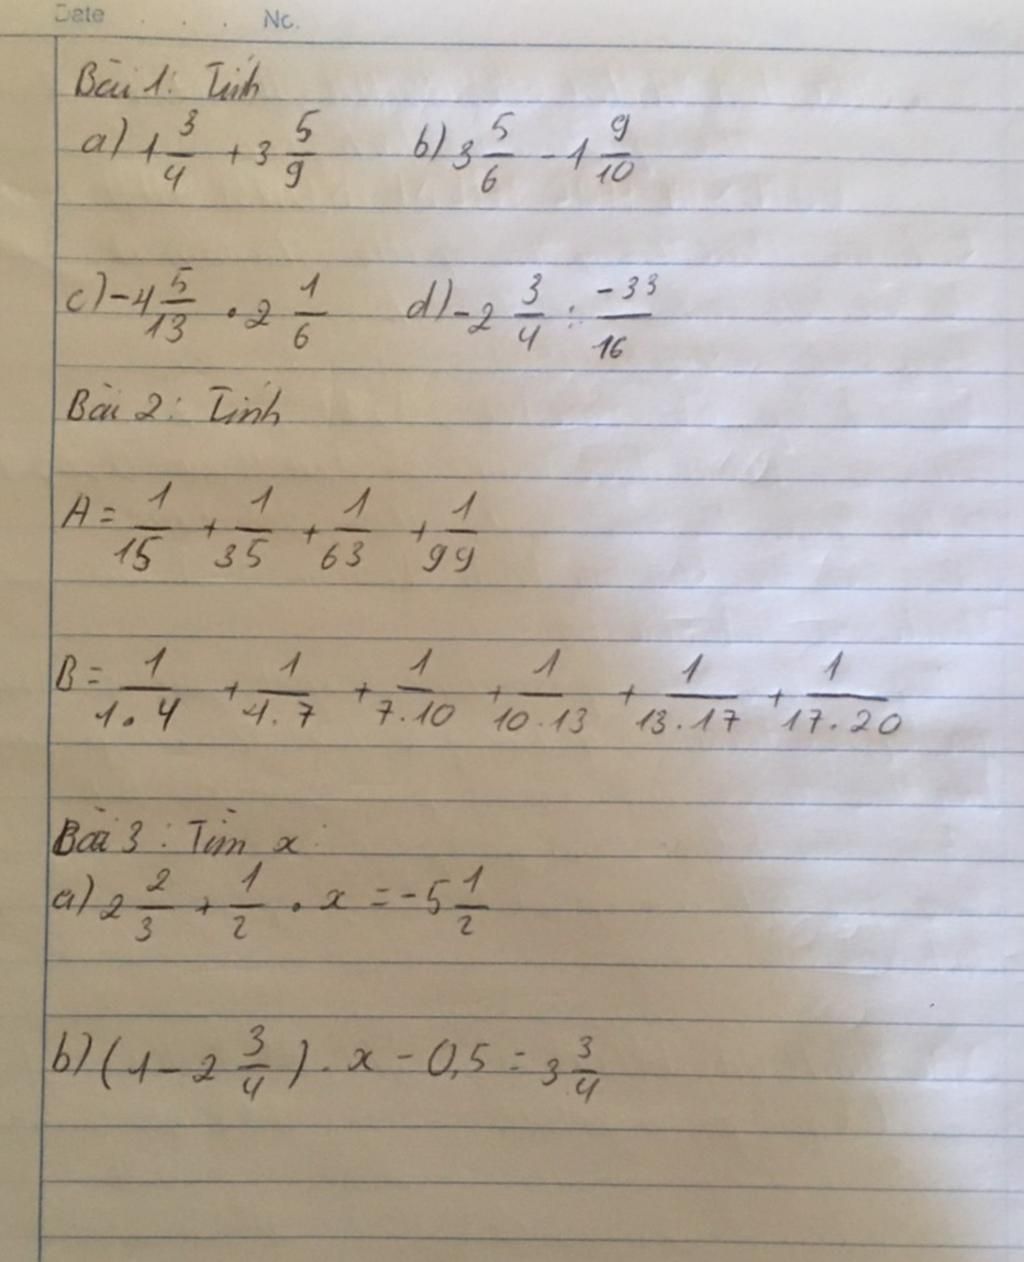 Date . . . No.
Bài 1: Tính
a) 1 3/4 + 3 5/9 b) 3 5/6 - 1 9/10
c) -4 5/13 . 2 1/6 d) -2 3/4 : -33/16
Bài 2: Tính
A = 1/15 + 1/35 + 1/63 + 1/99
B = 1/1.4 + 1/4.7 + 1/7.10 + 1/10.13 + 1/13.17 + 1/17.20
Bài 3: Tìm x:
a) 2 2/3 + 1/2 . x = -5 1/2
b) (1 - 2 3/4) . x - 0,5 = 3 3/4